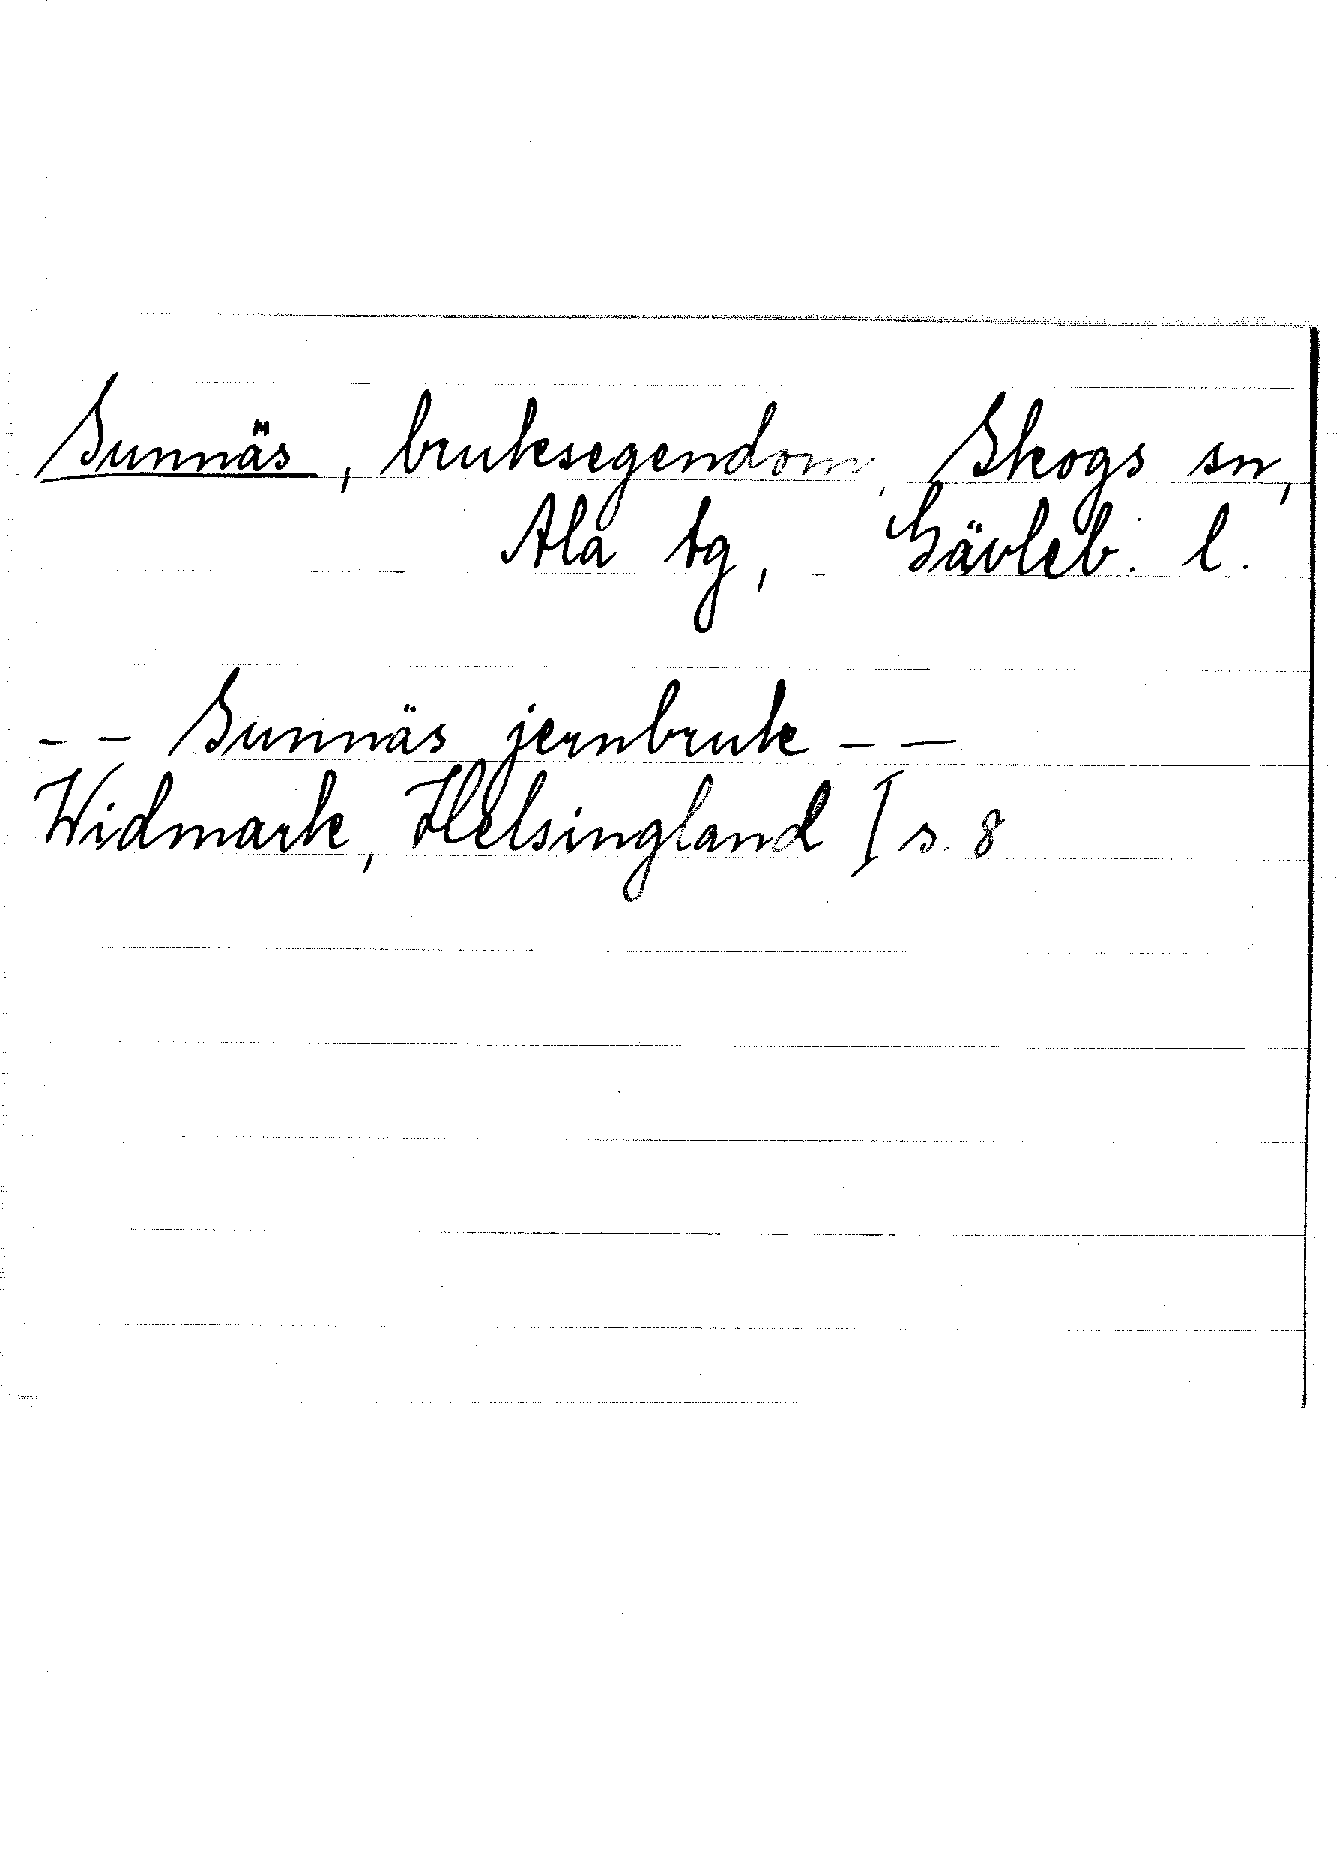 Sunnäs, bruksegendom, Skogs sn,
Ala tg, Gävleb. l.
-- Sunnäs jernbruk --
Widmark, Helsingland I s. 8